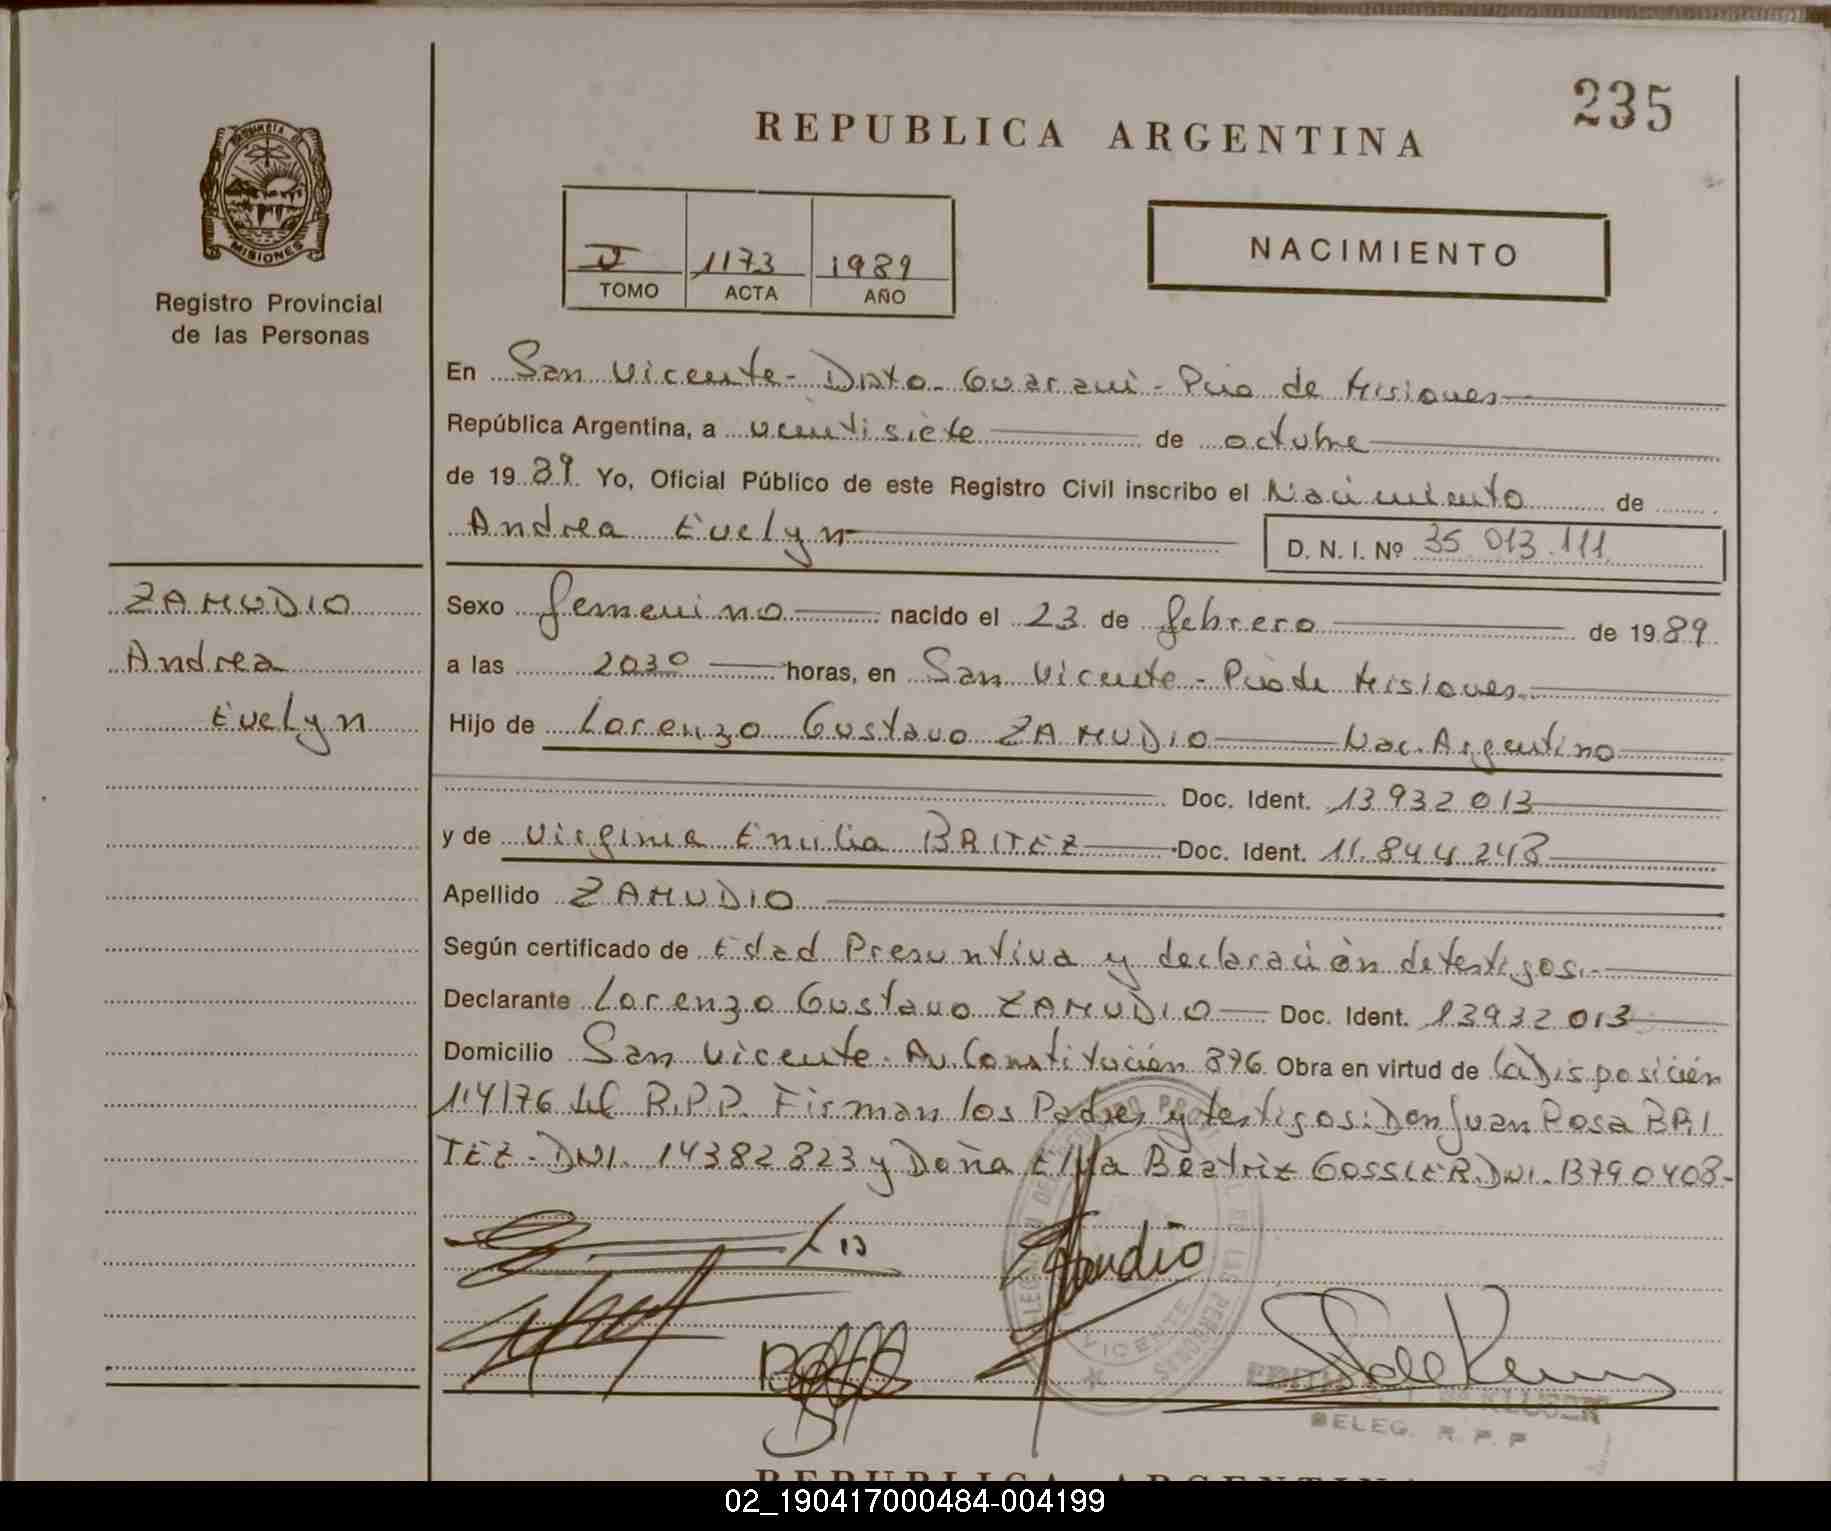 235
REPUBLICA ARGENTINA
MISIONES
Registro Provincial
de las Personas
1173 1989
TOMO ACTA AÑO
NACIMIENTO
En San Vicente - Dpto. Guaraní - Pcia de Misiones
República Argentina, a veintisiete de octubre
de 1989 Yo, Oficial Público de este Registro Civil inscribo el Nacimiento de
Andrea Evelyn
D. N. I. Nº 35.013.111
ZAMUDIO
Andrea
Evelyn
Sexo femenino nacido el 23 de febrero de 1989
a las 2030 horas, en San Vicente - Pcia de Misiones
Hijo de Lorenzo Gustavo ZAMUDIO Nac. Argentino
Doc. Ident. 13932013
y de Virginia Emilia BRITEZ Doc. Ident. 11.844.248
Apellido ZAMUDIO
Según certificado de Edad Presuntiva y declaración de testigos.
Declarante Lorenzo Gustavo ZAMUDIO Doc. Ident. 13932013
Domicilio San Vicente. Av. Constitución 876 Obra en virtud de la Disposición
114/76 del R.P.P. Firman los Padres y testigos: Don Juan Rosa BRI
TEZ - DNI. 14382823 y Doña Beatriz GOSSLER. DNI. 13790408-
VICENTE
DELEG. R. P. P
REPUBLICA ARGENTINA
02_190417000484-004199